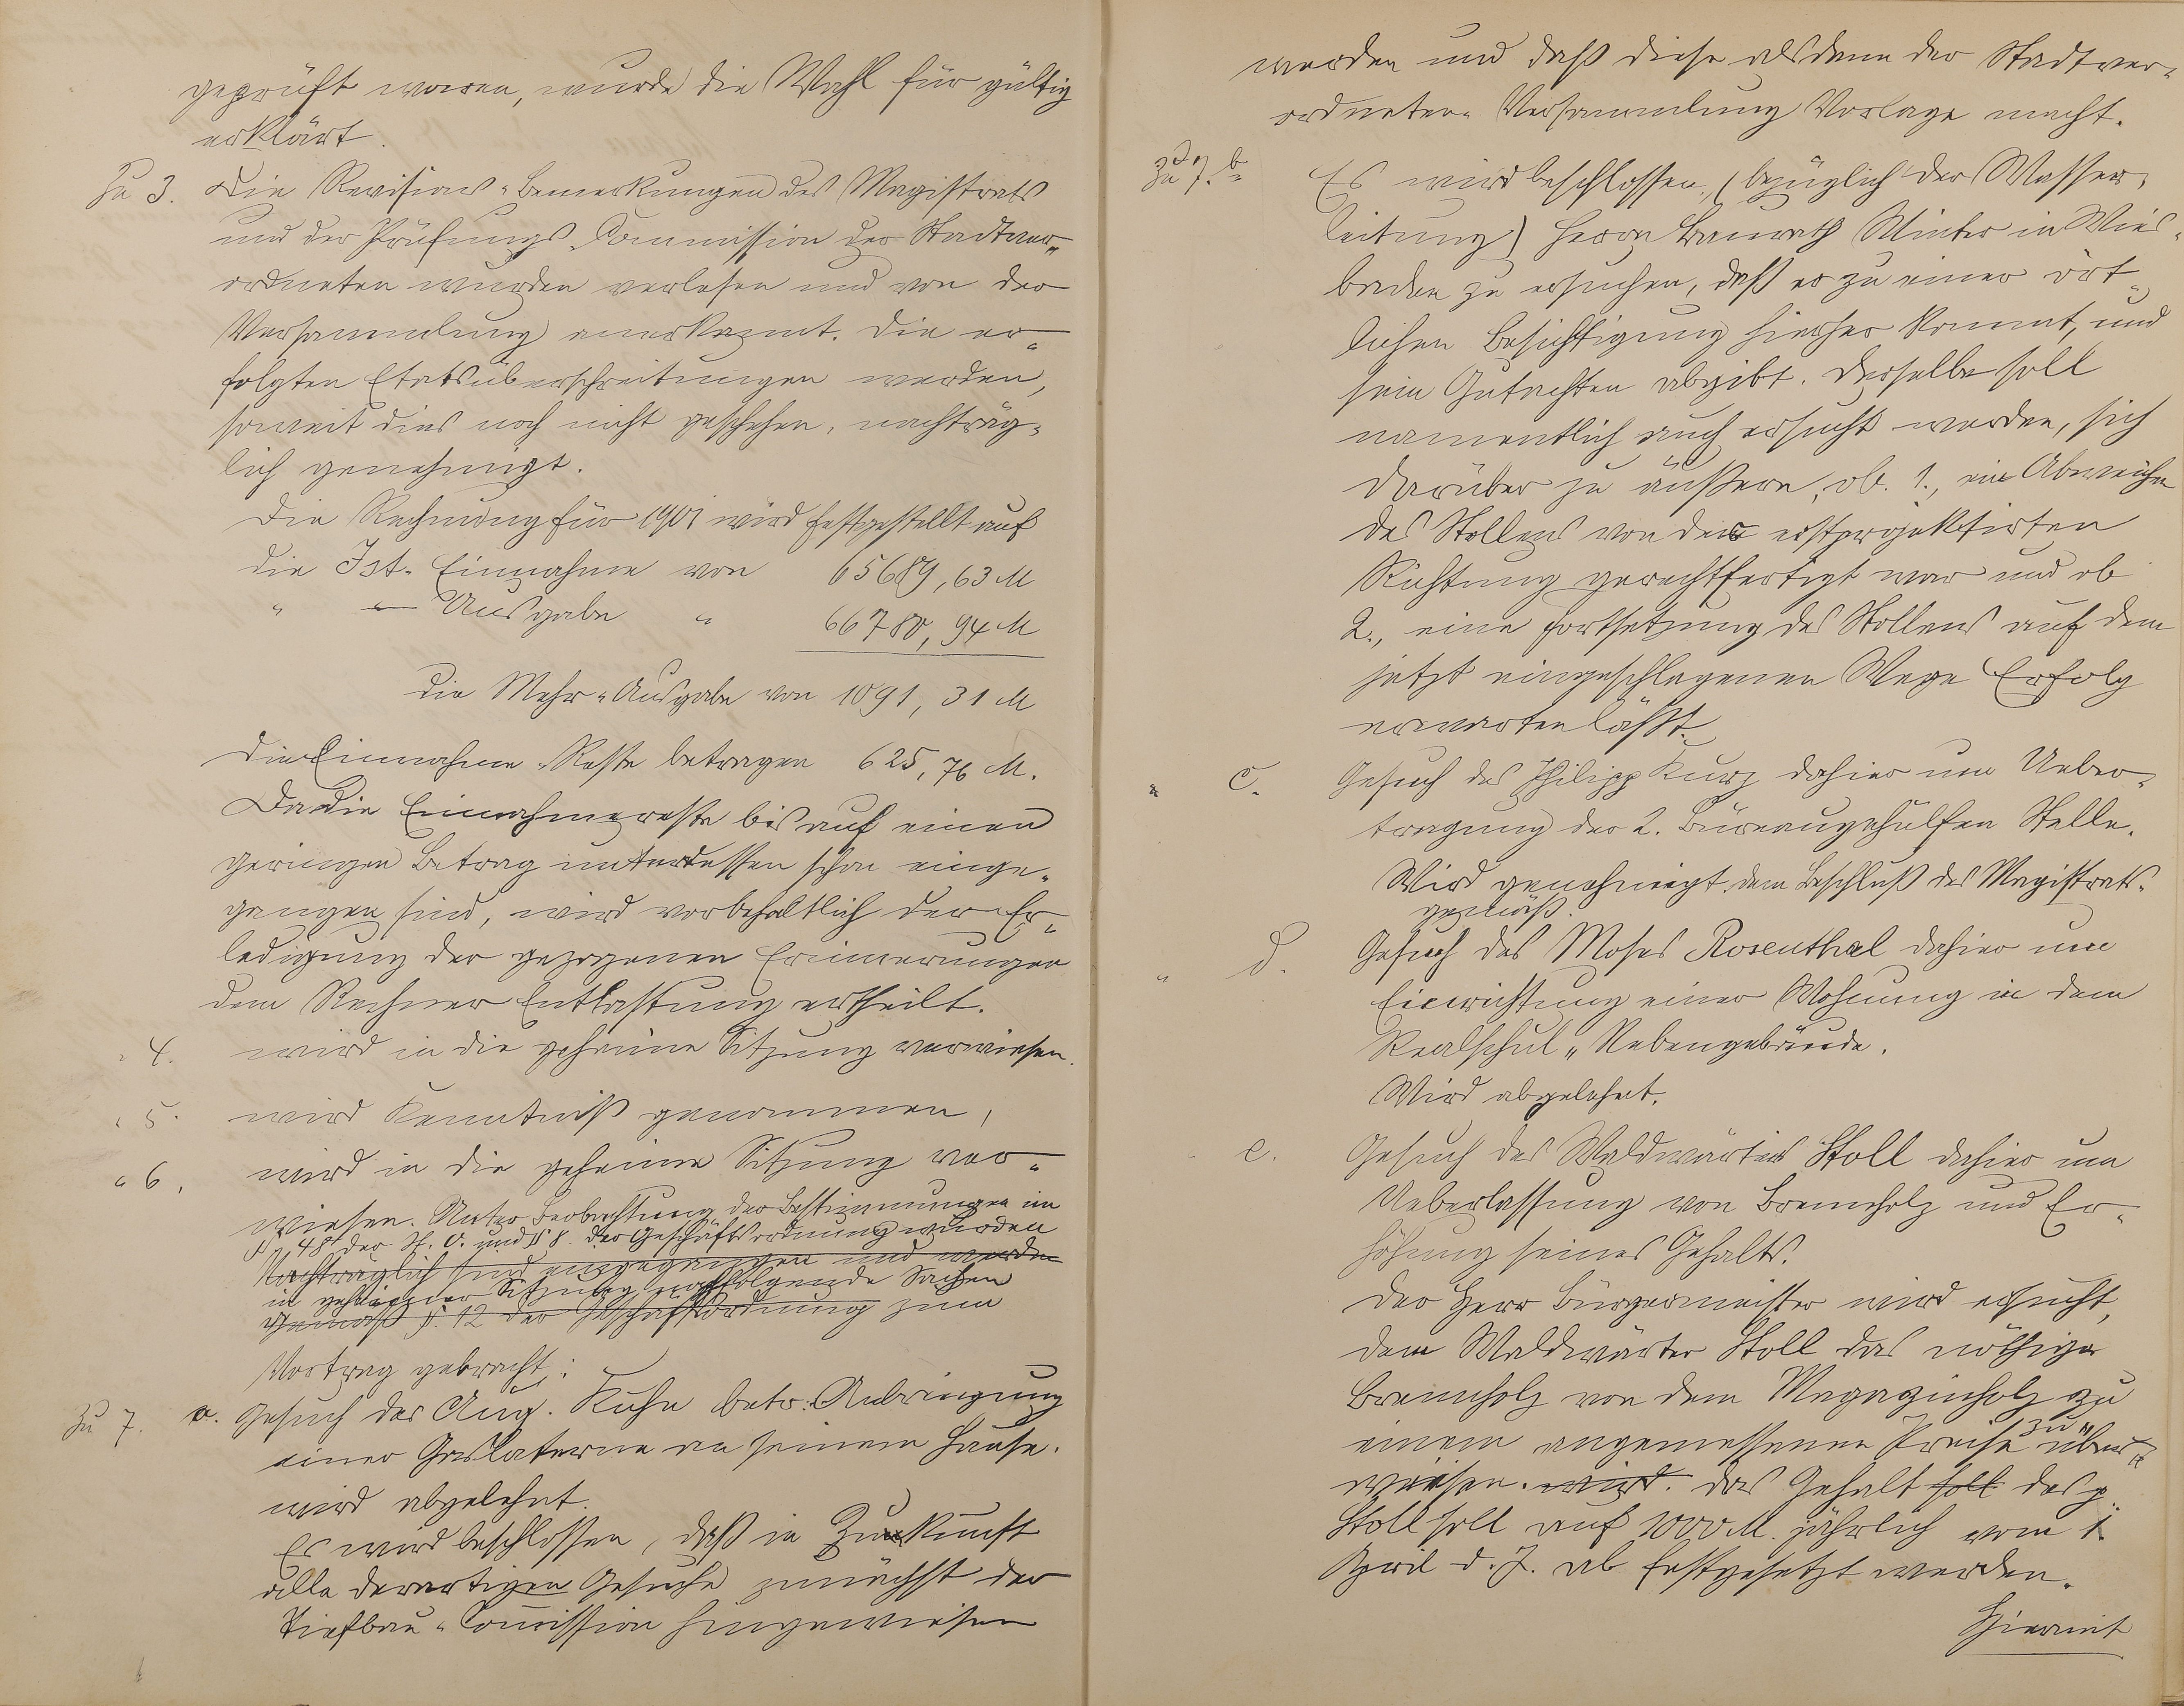 geprüft waren, wurde die Wahl für gültig
erklärt.
Zu 3. Die Revisions-Bemerkungen des Magistrats
und der Prüfungs-Commission der Stadtver-
ordneten wurden verlesen und von der
Versammlung anerkannt. Die er-
folgten Etatsüberschreitungen werden,
soweit dies noch nicht geschehen, nachträg-
lich genehmigt.
Die Rechnung für 1901 wird festgestellt auf
die Ist-Einnahme von 65689,63 M
" " Ausgabe " 66780,94 M
die Mehr-Ausgabe von 1091,31 M
Die Einnahme Reste betragen 625,76 M.
Da die Einnahmereste bis auf einen
geringen Betrag unterdessen schon einge-
gangen sind, wird vorbehaltlich der Er-
ledigung der gezogenen Erinnerungen
dem Rechner Entlastung ertheilt.
" 4. wird in die geheime Sitzung verwiesen.
" 5. wird Kenntniß genommen,
" 6. wird in die geheime Sitzung ver-
wiesen. Unter Beobachtung der Bestimmungen im
§ 48 der St. O. und § 8 der Geschäftsordnung wurden
Nachträglich sind eingegangen und werden
in geheimer Sitzung nachfolgende Sachen
gemäß § 12 der Geschäftsordnung zum
Vortrag gebracht:
Zu 7. a. Gesuch des Aug. Kuhn betr. Anbringung
einer Gaslaterne an seinem Hause.
wird abgelehnt.
Es wird beschlossen, daß in Zukunft
alle derartigen Gesuche zunächst der
Tiefbau-Commission hingewiesen
werden und daß diese alsdann der Stadtver-
ordneten-Versammlung Vorlage macht.
Zu 7. b. Es wird beschlossen, (bezüglich der Wasser-
leitung) Herrn Baurath Winter in Wies-
baden zu ersuchen, daß er zu einer ört-
lichen Besichtigung hierher kommt, und
sein Gutachten abgibt. Derselbe soll
namentlich auch ersucht werden, sich
darüber zu äußern, ob 1., ein Abweichen
des Stollens von der erstprojektirten
Richtung gerechtfertigt war und ob
2., eine Fortsetzung des Stollens auf dem
jetzt eingeschlagenen Wege Erfolg
erwarten läßt.
" c. Gesuch des Philipp Kurz dahier um Ueber-
tragung der 2. Büreaugehülfen Stelle.
Wird genehmigt, dem Beschluß des Magistrats-
gemäß.
" d. Gesuch des Moses Rosenthal dahier um
Einrichtung einer Wohnung in dem
Realschul-Nebengebäude.
Wird abgelehnt.
" e. Gesuch des Waldwärters Stoll dahier um
Ueberlassung von Brennholz und Er-
höhung seines Gehalts.
Der Herr Bürgermeister wird ersucht,
dem Waldwärter Stoll das nöthige
Brennholz von dem Magazinholz zu
einem angemessenen Preise zu über-
weisen. wird. Das Gehalt soll des p.
Stoll soll auf 1000 M. jährlich vom 1.
April d. J. ab festgesetzt werden.
Hiermit